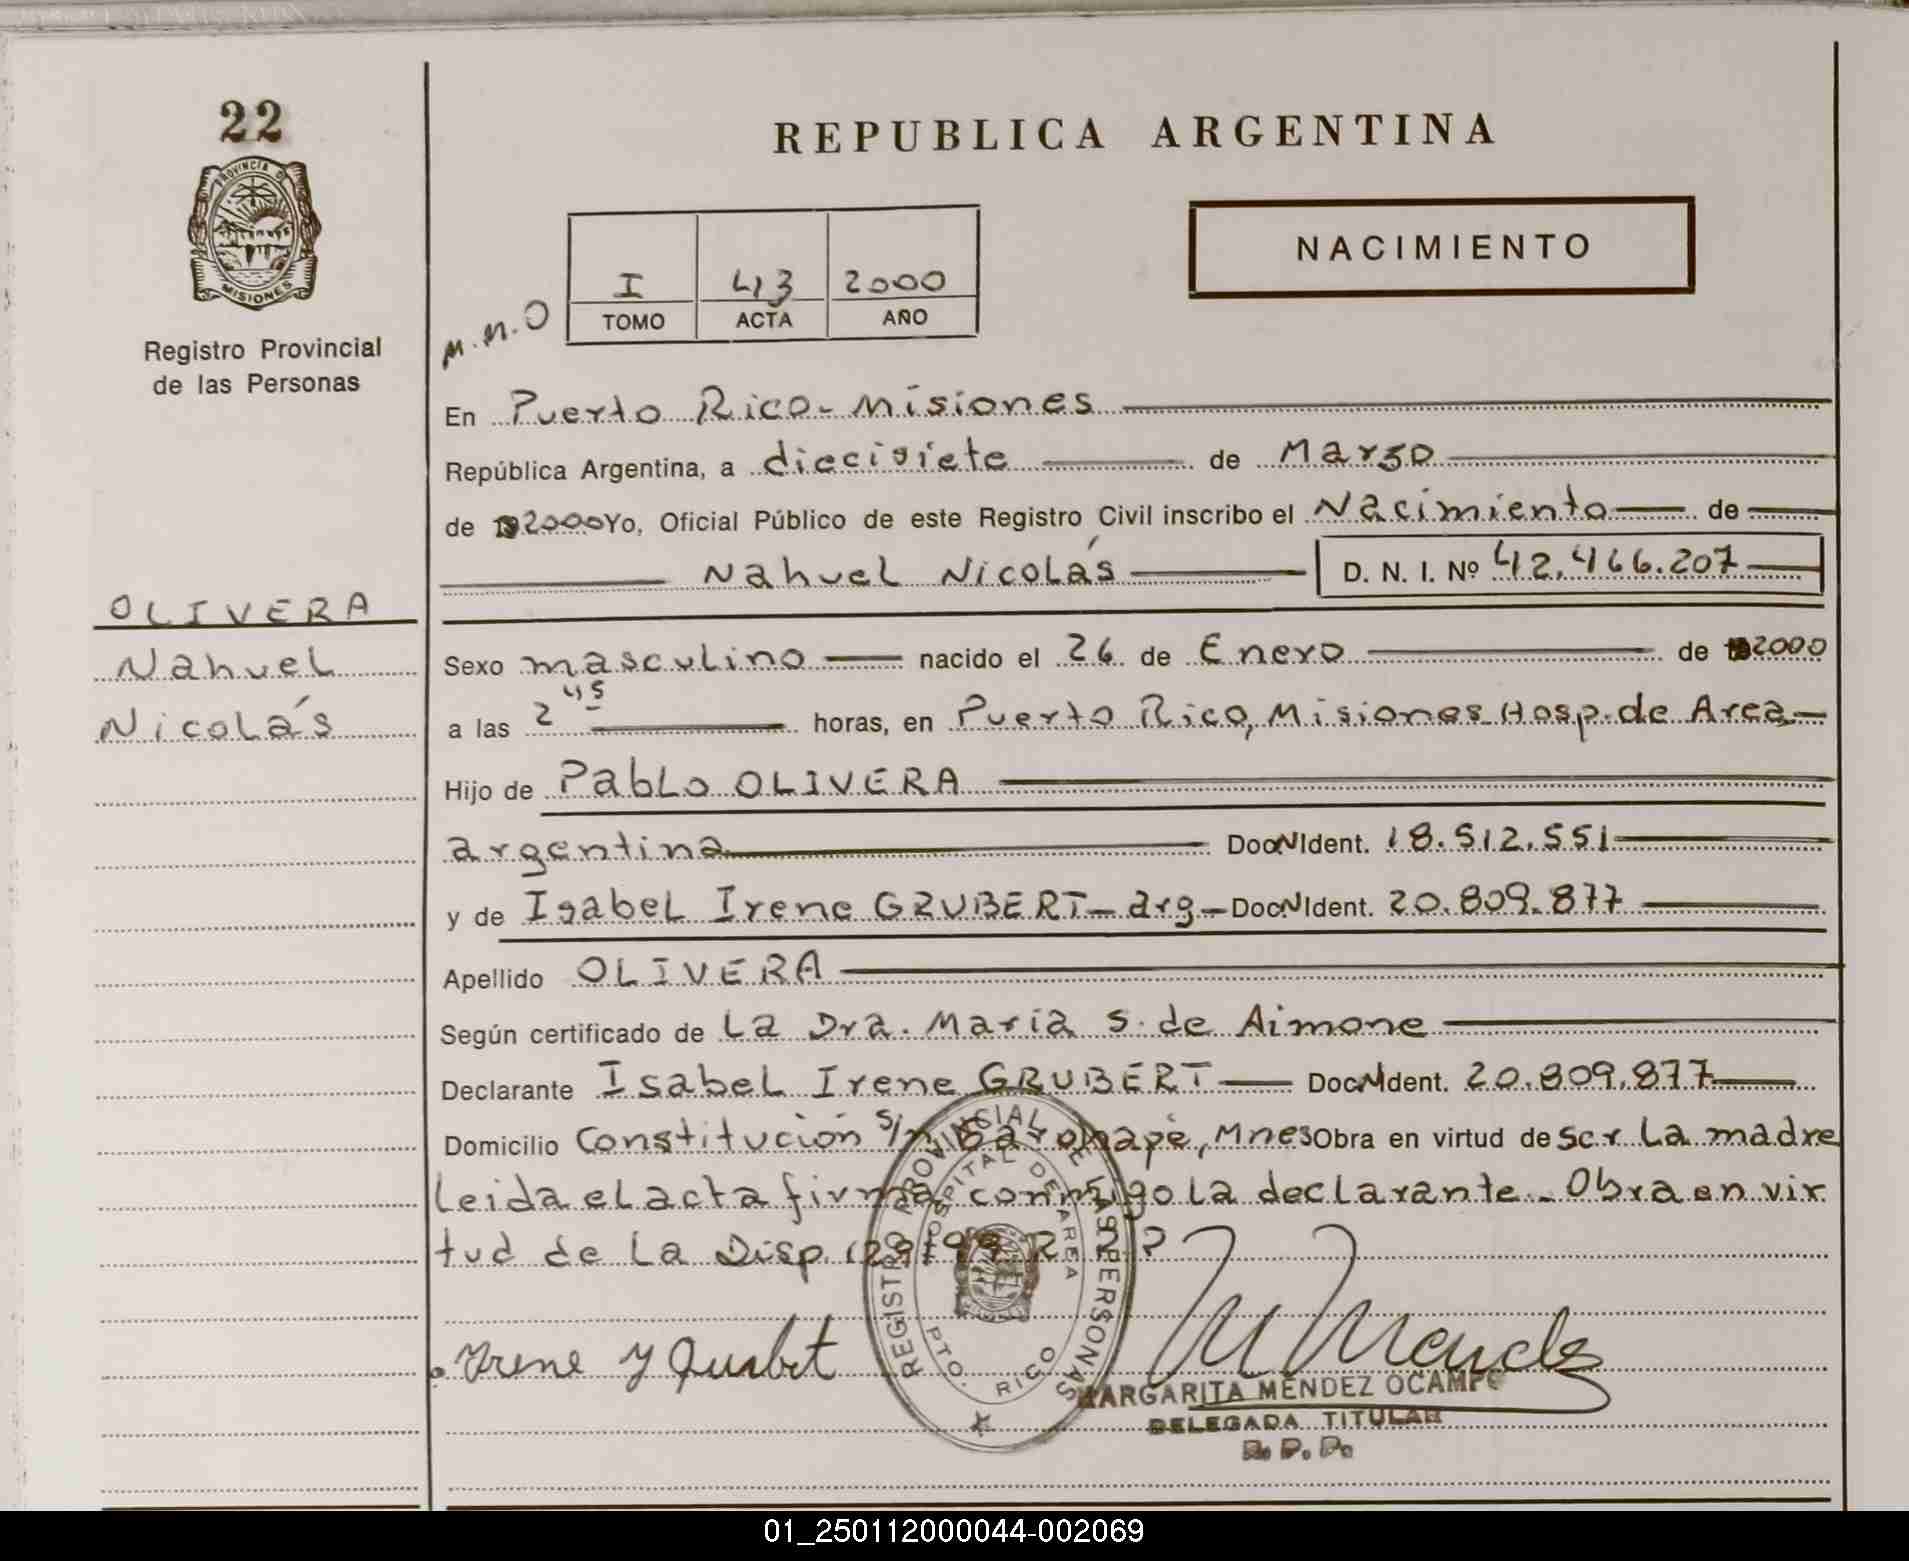 22
PROVINCIA DE
MISIONES
Registro Provincial
de las Personas
REPUBLICA ARGENTINA
NACIMIENTO
I 43 2000
TOMO ACTA AÑO
M.M.O
En Puerto Rico - Misiones
República Argentina, a diecisiete de Marzo
de 2000 Yo, Oficial Público de este Registro Civil inscribo el Nacimiento de
Nahuel Nicolás D. N. I. Nº 42.466.207
OLIVERA
Nahuel
Nicolás
Sexo masculino nacido el 26 de Enero de 2000
a las 2 45 horas, en Puerto Rico, Misiones Hosp. de Area
Hijo de Pablo OLIVERA
argentina Doc N Ident. 18.512.551
y de Isabel Irene GRUBERT - arg - Doc N Ident. 20.809.877
Apellido OLIVERA
Según certificado de La Dra. María S. de Aimone
Declarante Isabel Irene GRUBERT Doc N Ident. 20.809.877
Domicilio Constitución s/n Garuhapé, Mnes Obra en virtud de ser La madre
leida el acta firma conmigo la declarante - Obra en vir
tud de La Disp. 129-99 R P P
REGISTRO PROVINCIAL DE LAS PERSONAS
HOSPITAL DE AREA
PTO. RICO
M Mendez
MARGARITA MENDEZ OCAMPO
DELEGADA TITULAR
R. P. P.
01_250112000044-002069